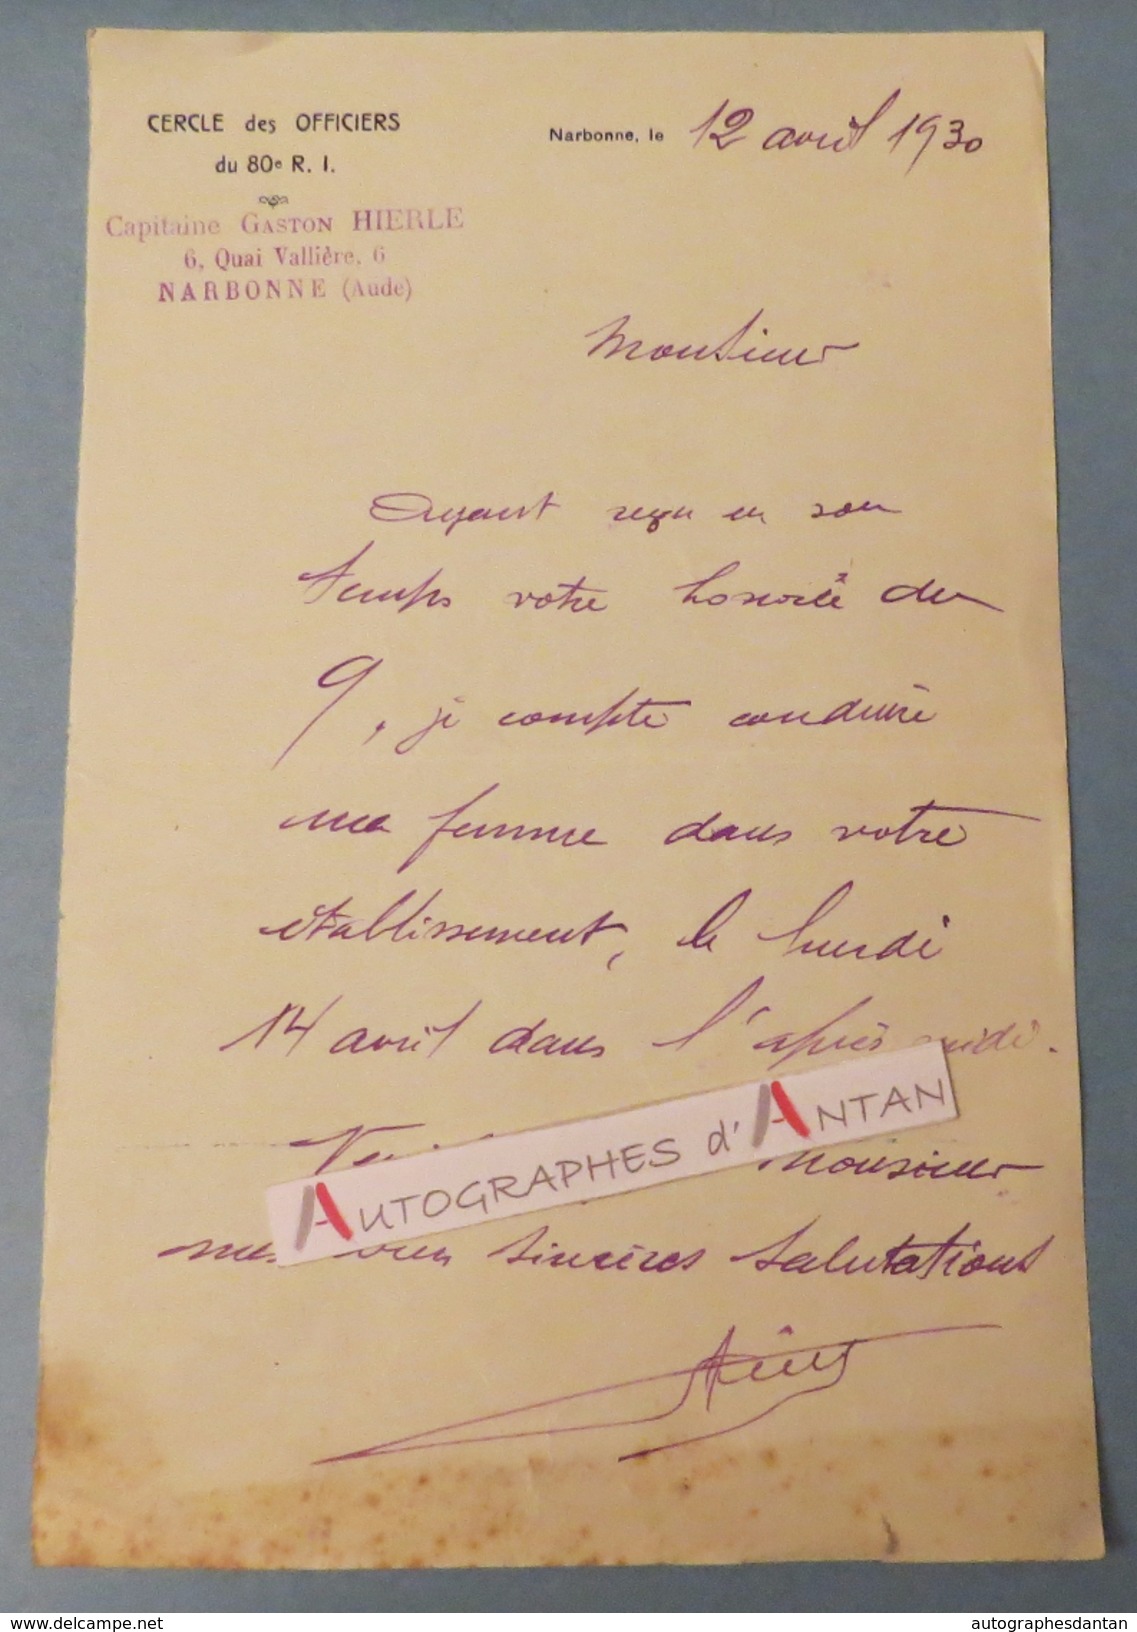 CERCLE des OFFICIERS
du 80e R. I.
Capitaine GASTON HIERLE
6, Quai Vallière, 6
NARBONNE (Aude)
Narbonne, le 12 avril 1930
Monsieur
Ayant reçu en son
temps votre honorée du
9, je compte conduire
ma femme dans votre
établissement, le lundi
14 avril dans l'après midi.
Monsieur
AUTOGRAPHES d'ANTAN
mes sincères salutations
www.delcampe.net
autographesdantan